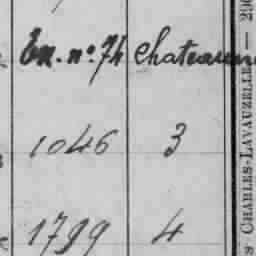 En. n°. 74 Chateau
1046 3
1799 4
CHARLES-LAVAUZELLE — 290